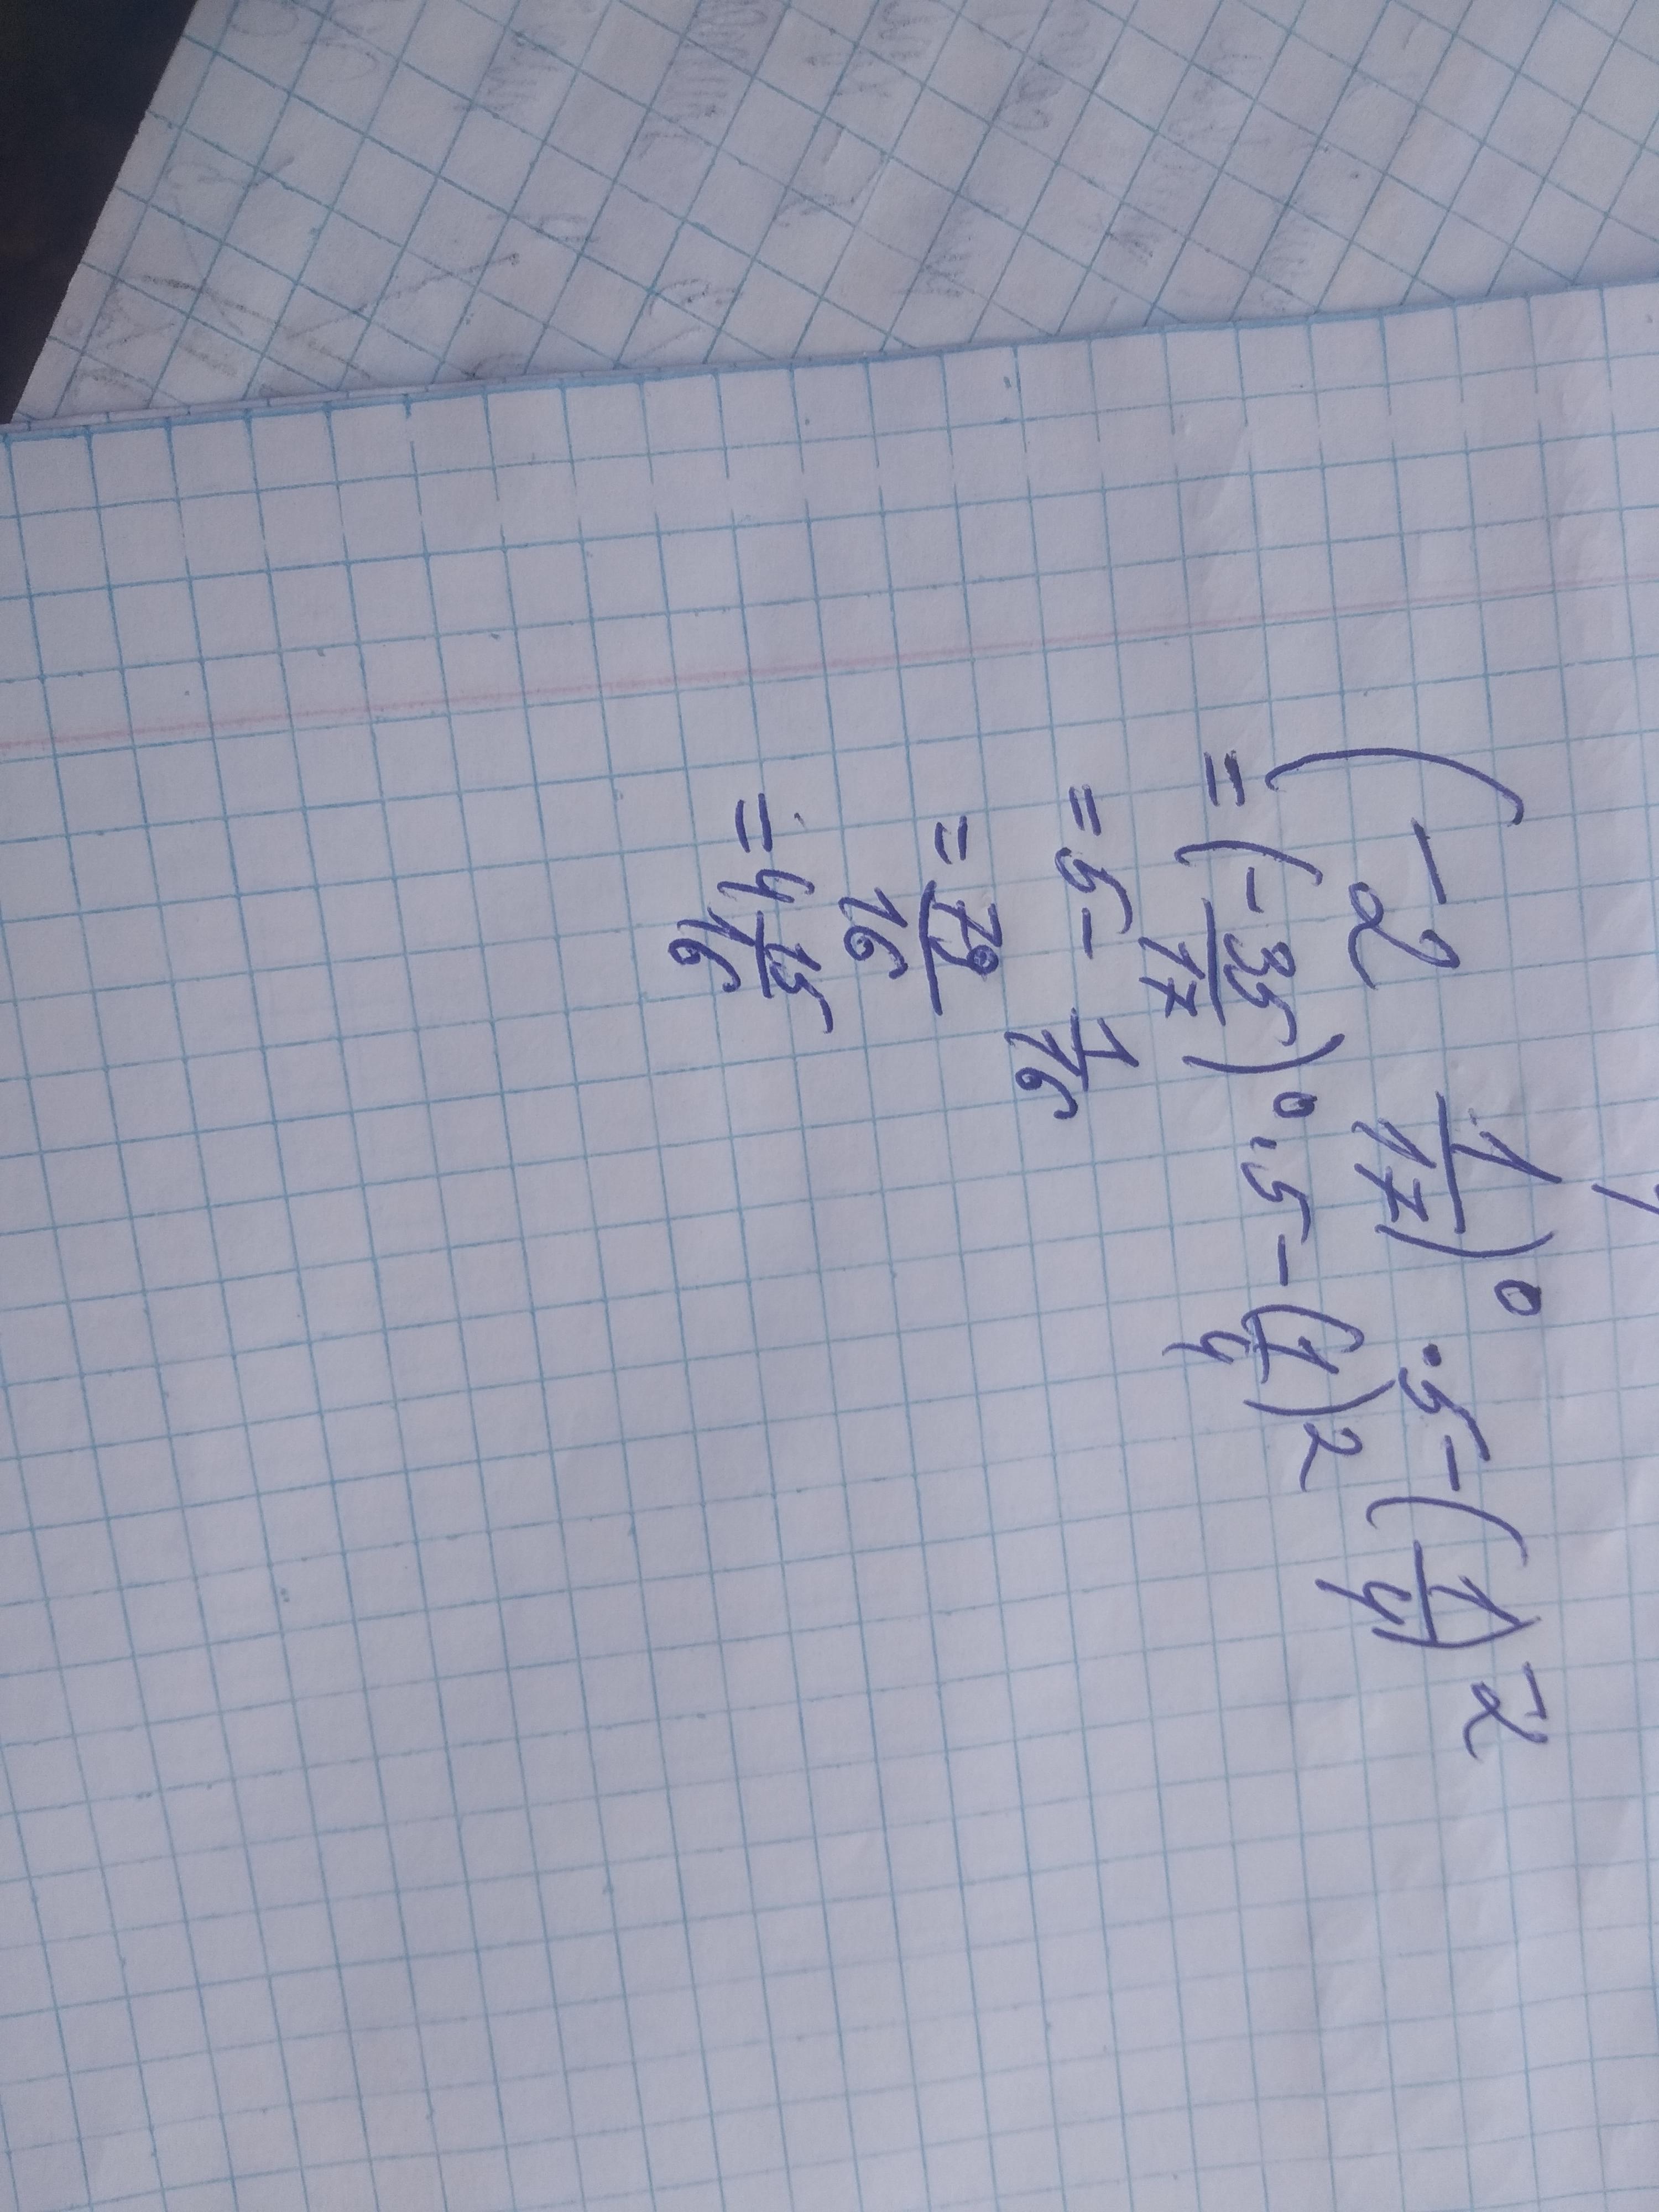 (-2 1/17)⁰ · 5 - (1/4)⁻²
= (-35/17)⁰ · 5 - (1/4)²
= 5 - 1/16
= 79/16
= 4 15/16